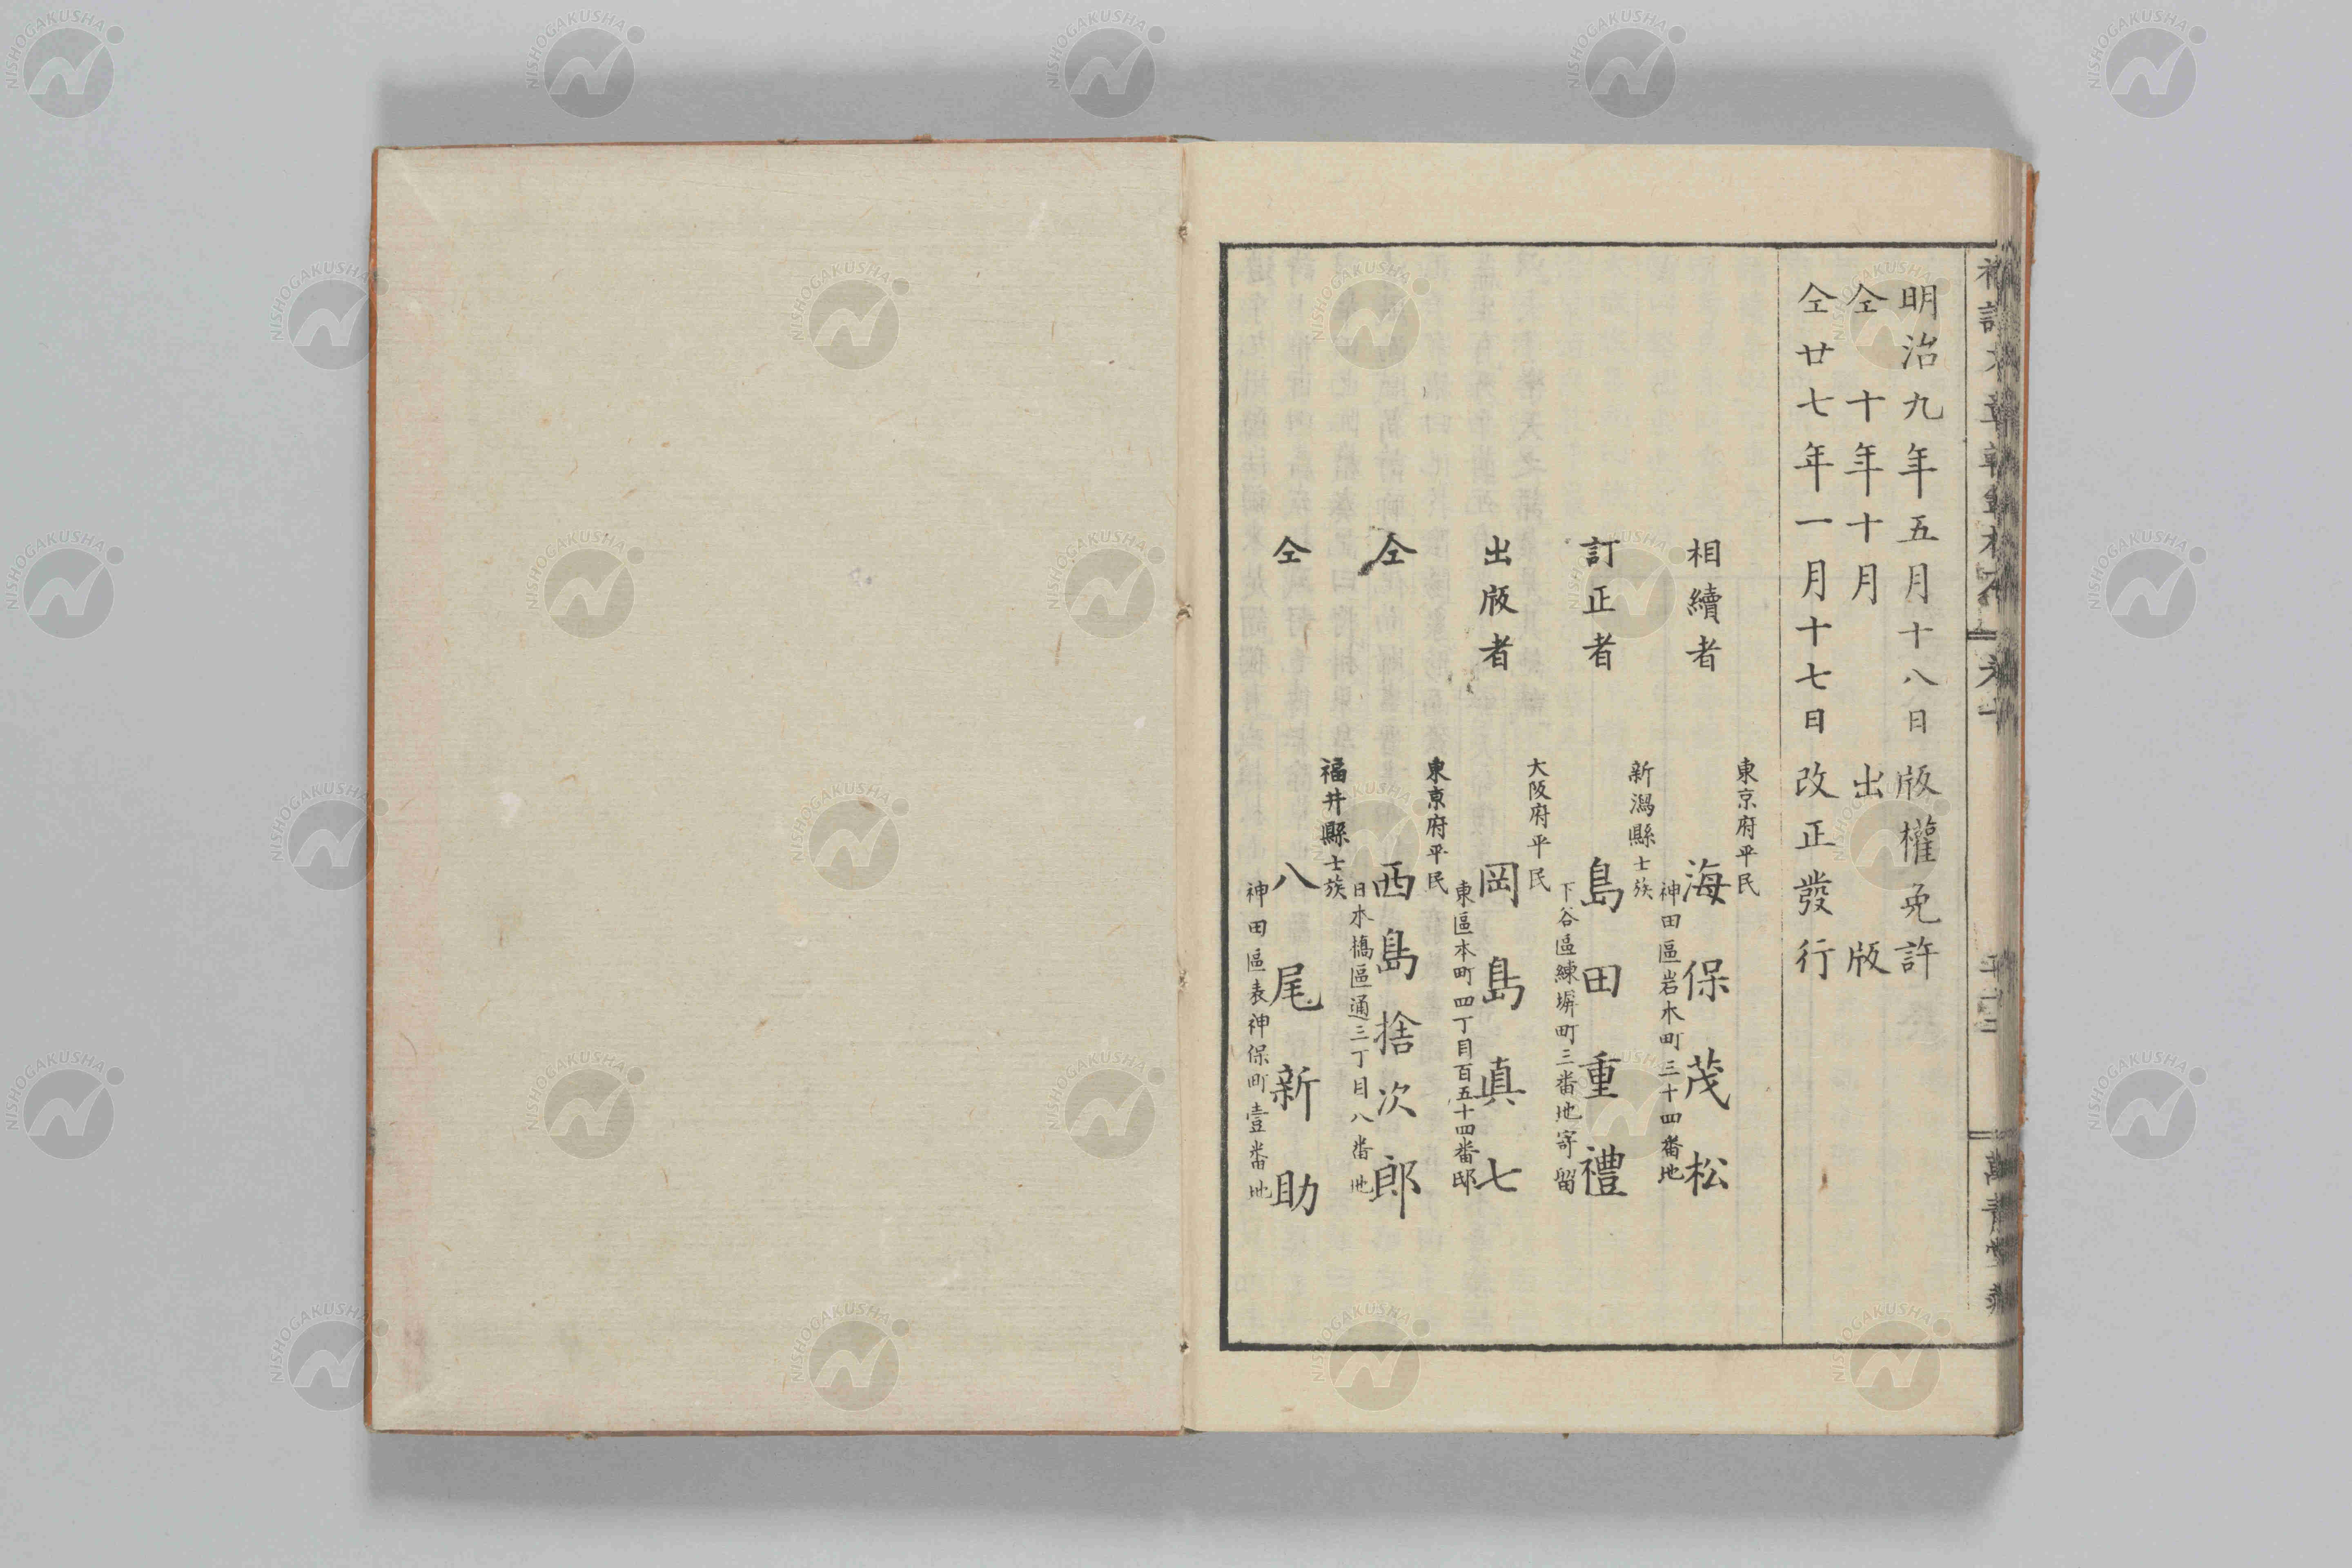 明治九年五月十八日版權免許
仝十年十月出版
仝廿七年一月十七日改正發行
東京府平民
相續者 海保茂松
神田區岩木町三十四番地
新潟縣士族
訂正者 島田重禮
下谷區練塀町三番地寄留
大阪府平民
出版者 岡島真七
東區本町四丁目百五十四番邸
東京府平民
仝 西島捨次郎
日本橋區通三丁目八番地
福井縣士族
仝 八尾新助
神田區表神保町壹番地
NISHOGAKUSHA